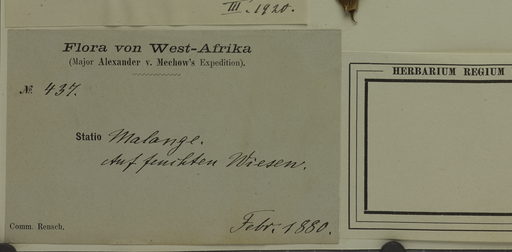 III. 1920.
Flora von West-Afrika
(Major Alexander v. Mechow's Expedition).
№ 437.
Statio Malange.
Auf feuchten Wiesen.
Comm. Rensch.
Febr. 1880.
HERBARIUM REGIUM